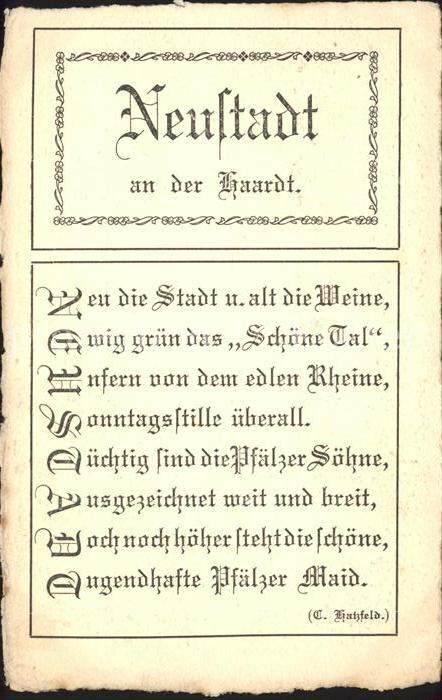 Neuſtadt
an der Haardt.
Neu die Stadt u. alt die Weine,
Ewig grün das „Schöne Tal“,
Unfern von dem edlen Rheine,
Sonntagsſtille überall.
Tüchtig ſind die Pfälzer Söhne,
Ausgezeichnet weit und breit,
Doch noch höher ſteht die ſchöne,
Tugendhafte Pfälzer Maid.
(C. Hatzfeld.)